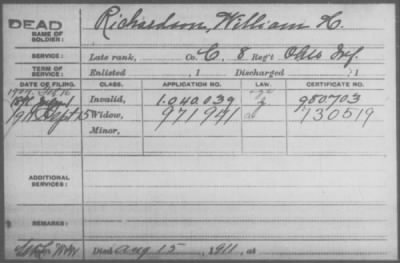 DEAD Richardson, William H.
NAME OF SOLDIER:
SERVICE: Late rank, Co. C. 8 Reg't Ohio Inf.
TERM OF SERVICE: Enlisted , 1 Discharged , 1
DATE OF FILING. CLASS. APPLICATION NO. LAW. CERTIFICATE NO.
Invalid, 1.040.039 980.703
1911 Sept 15 Widow, 971941 730519
Minor,
ADDITIONAL SERVICES:
REMARKS:
Died Aug 15, 1911, at